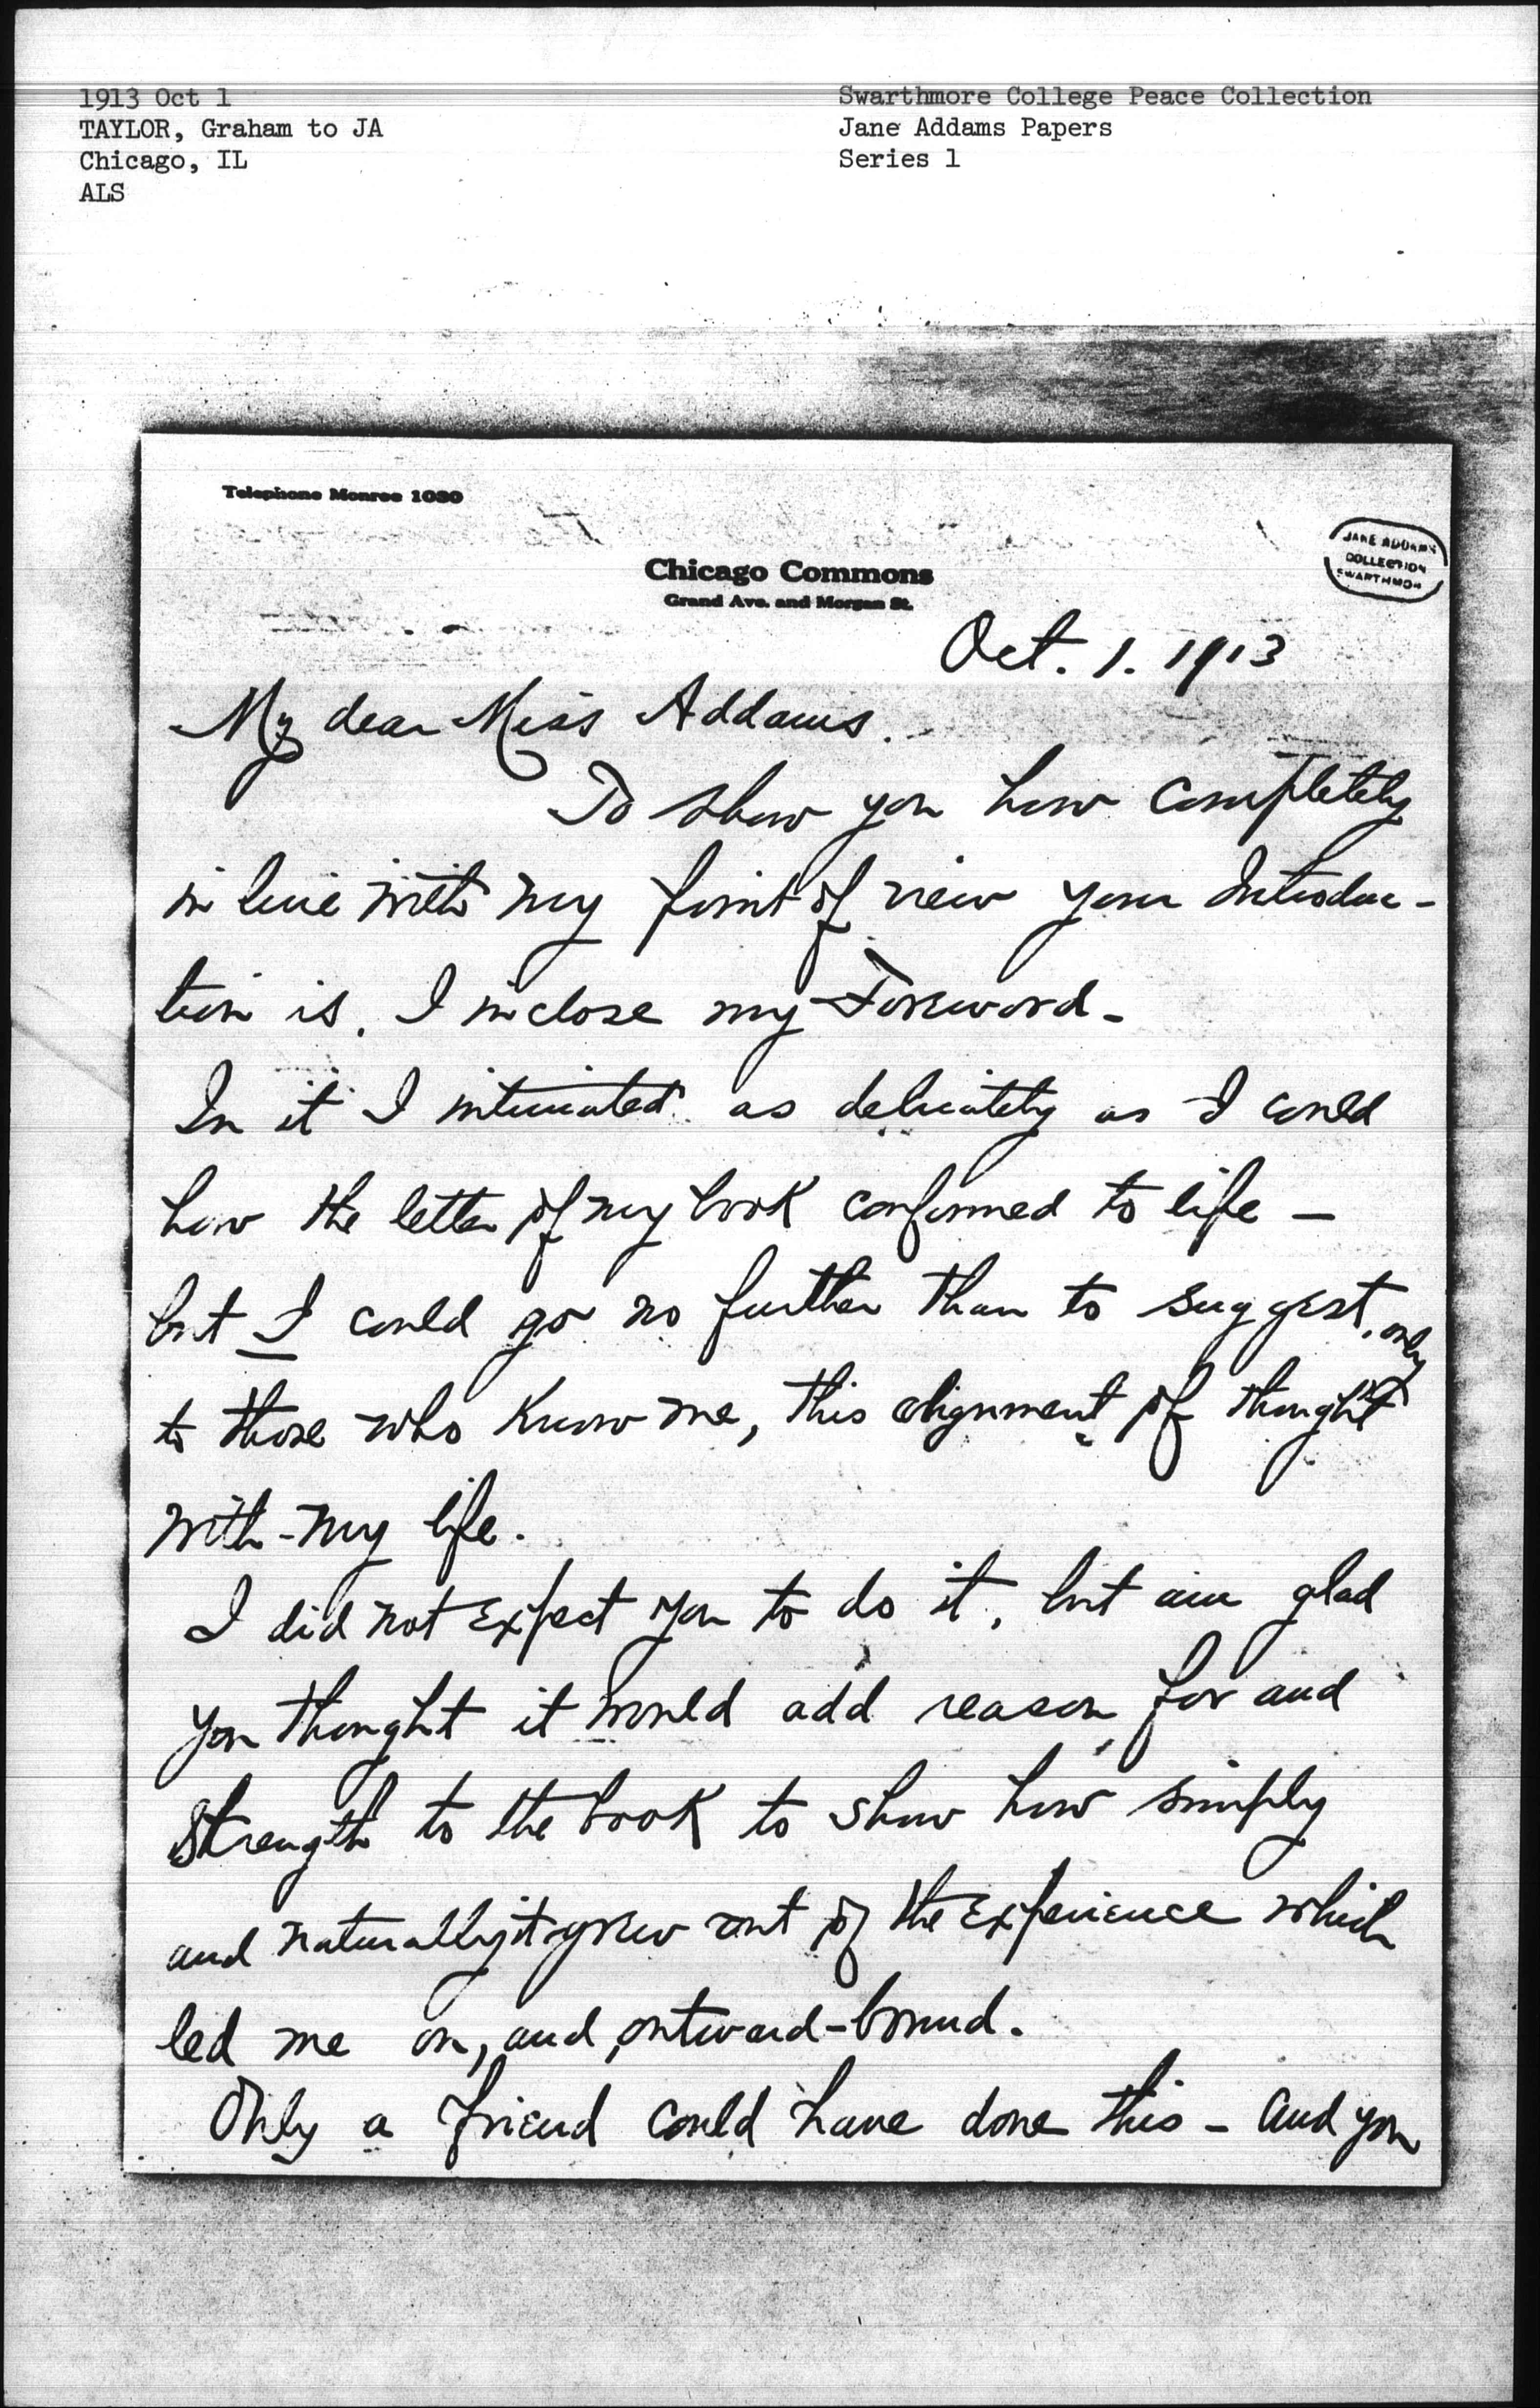 1913 Oct 1
TAYLOR, Graham to JA
Chicago, IL
ALS
Swarthmore College Peace Collection
Jane Addams Papers
Series 1
Telephone Monroe 1030
JANE ADDAMS
COLLECTION
SWARTHMOR
Chicago Commons
Grand Ave. and Morgan St.
Oct. 1. 1913
My dear Miss Addams.
To show you how completely
in line with my point of view your Introduc-
tion is. I inclose my Foreword-
In it I intimated as delicately as I could
how the letter of my book conformed to life -
but I could go no further than to suggest, only
to those who know me, this alignment of thought
with my life.
I did not expect you to do it, but am glad
you thought it would add reason for and
strength to the book to show how simply
and naturally it grew out of the experience which
led me on, and outward-bound.
Only a friend could have done this - and you